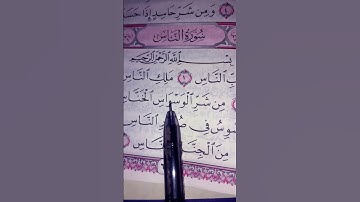 وَمِن شَرِّ حَاسِدٍ إِذَا حَسَ
سُورَةُ النَّاسِ
بِسْمِ اللَّهِ الرَّحْمَٰنِ الرَّحِيمِ
بِّ النَّاسِ ١ مَلِكِ النَّا
مِن شَرِّ الْوَسْوَاسِ الْخَنَّا
سْوِسُ فِي النَّاسِ
مِنَ الْجِنَّ